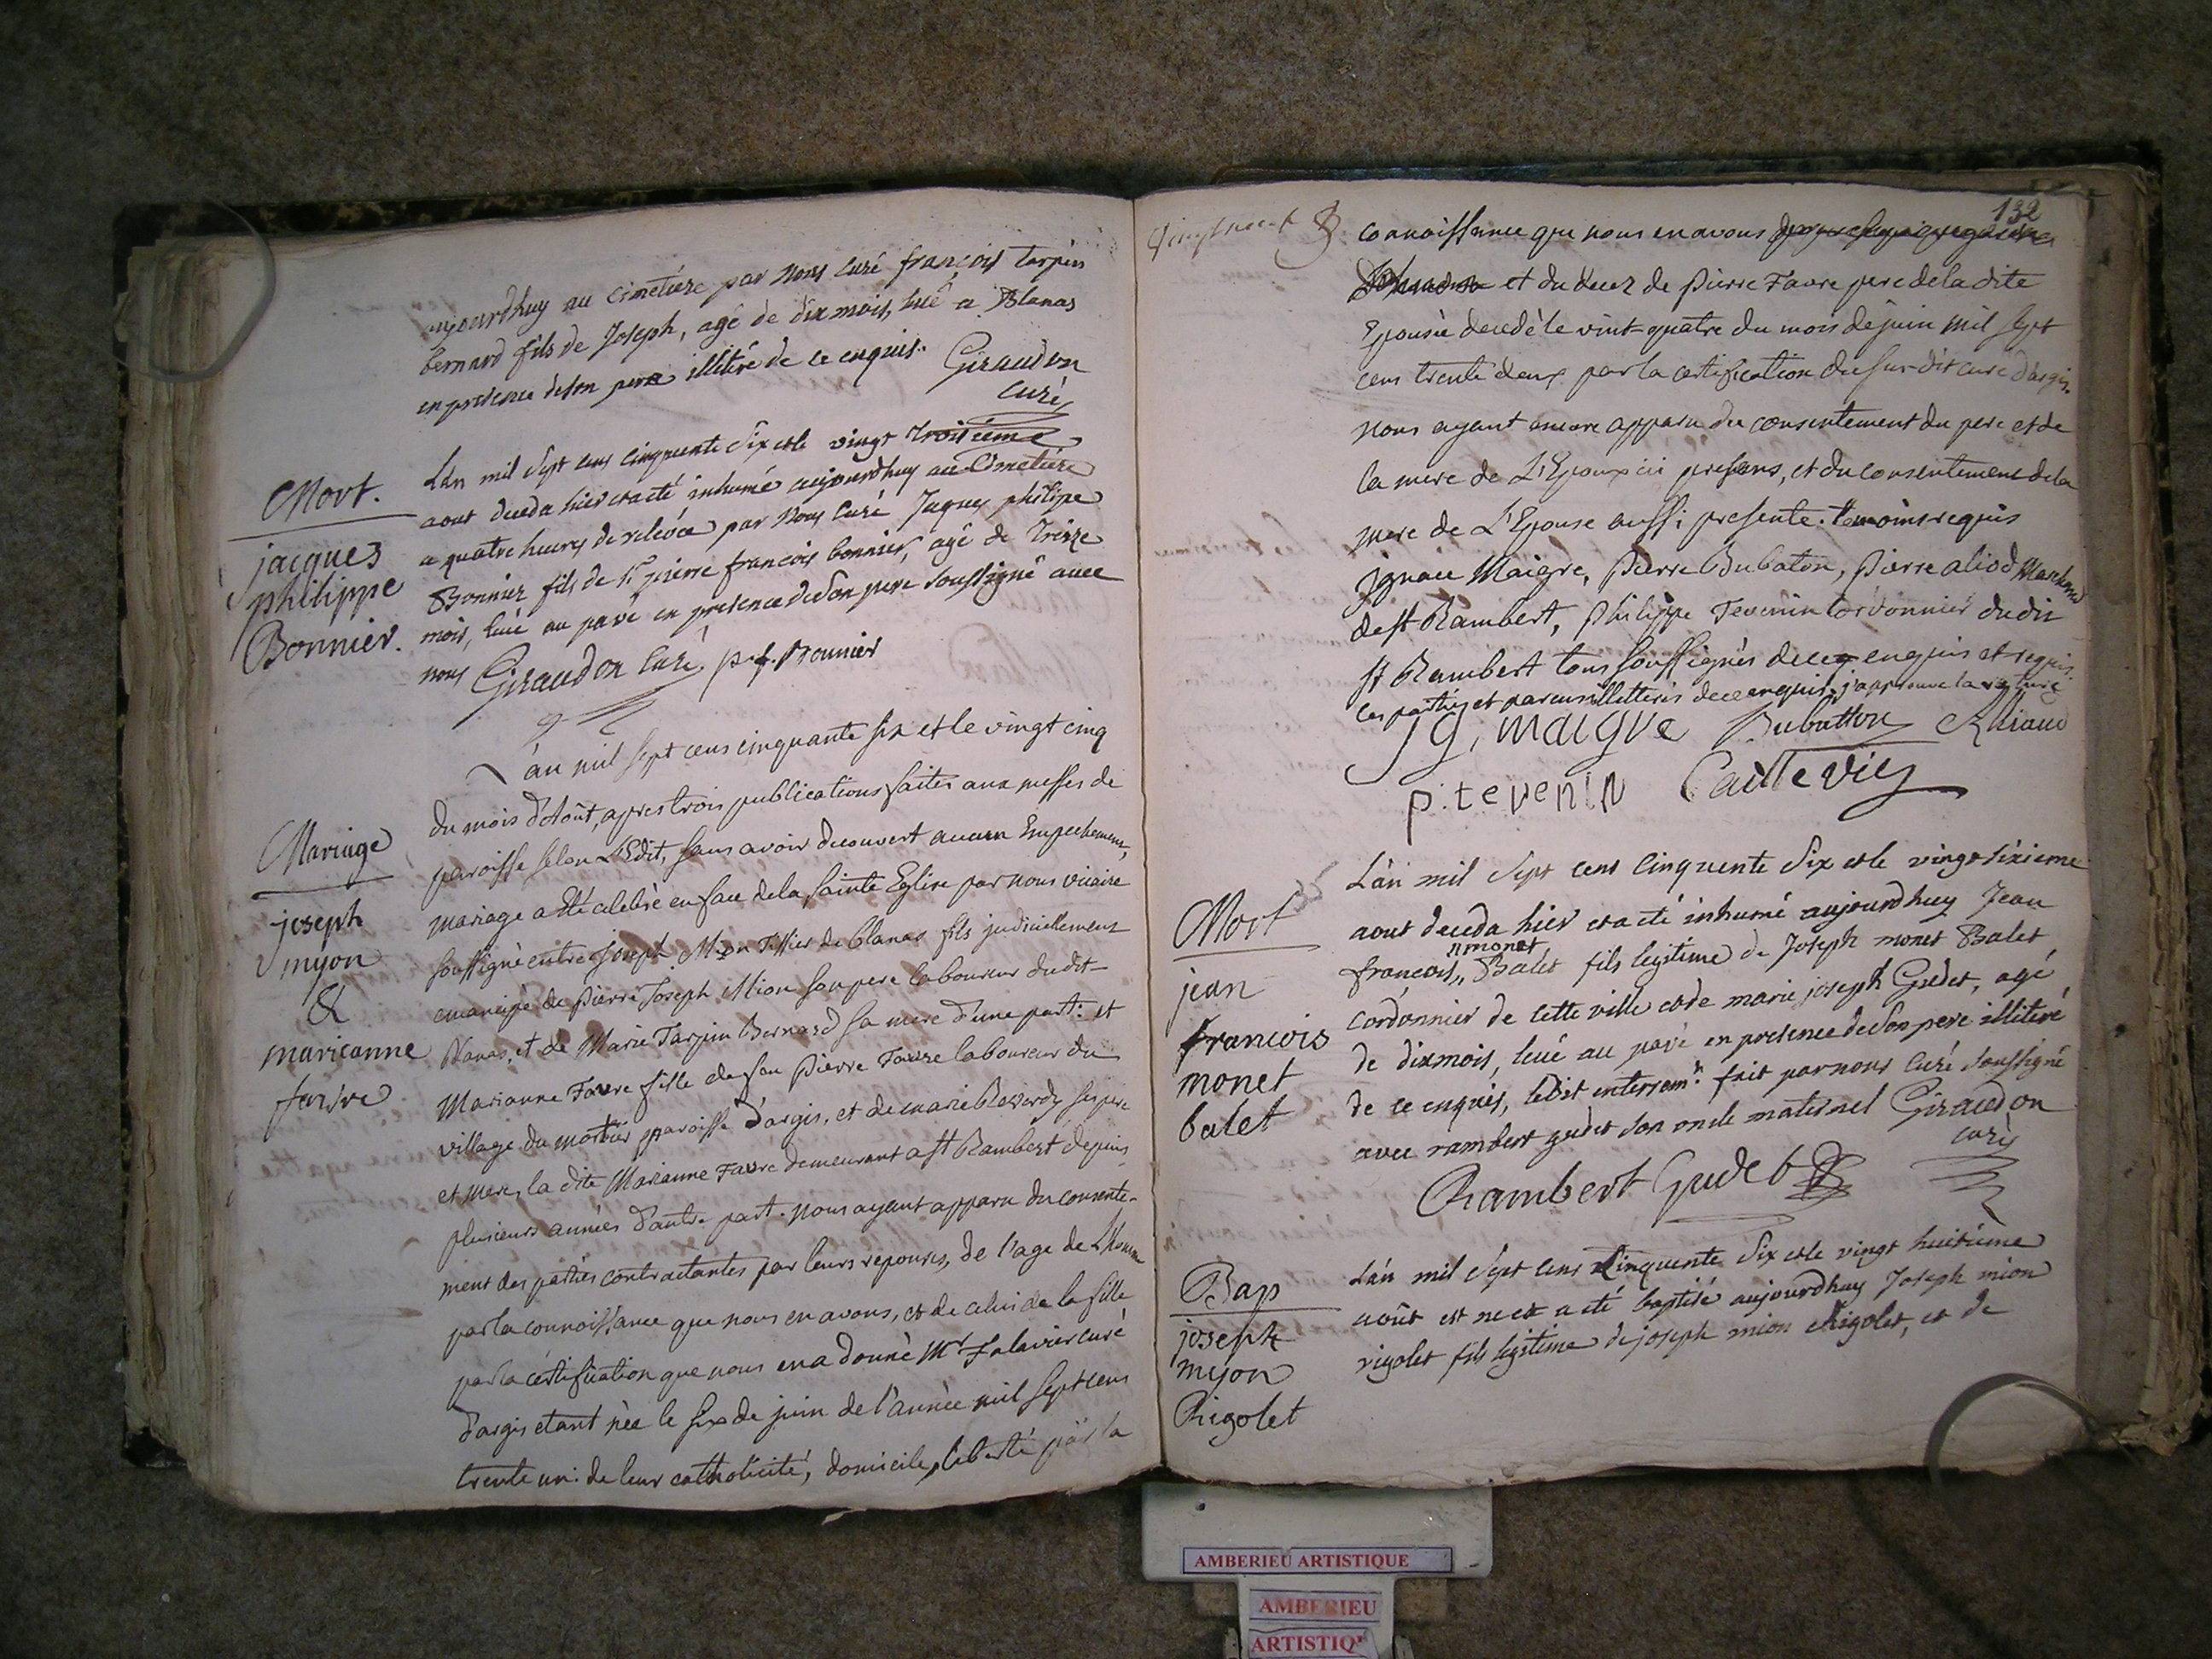 aujourdhuy au cimetiére par nous curé françois tarpin
bernard fils de Joseph, agé de dix mois, levé a Blanas
en presence de son pere illitéré de ce enquis. Giraudon
curé
Mort.
jacques
philippe
Bonnier.
L'an mil sept cens cinquente six et le vingt troisieme
aout deceda hier et a eté inhumé aujourdhuy au Cimetiére
a quatre heures de relevée par nous curé Jaques philipe
Bonnier fils de Sr pierre francois bonnier, agé de treize
mois, levé au pavé en presence de son pere soussigné avec
nous Giraudon curé. p. f. Bonnier
Mariage
joseph
myon
&
marieanne
favre
L'an mil sept cens cinquante six et le vingt cinq
du mois d'Aoút, apres trois publications faites aux messes de
paroisse selon L'Edit, sans avoir decouvert aucun Empechement,
mariage a eté celebré en face de la sainte Eglise par nous vicaire
soussigné entre Joseph Mion Tissier de blanas fils judiciellement
emancipé de pierre Joseph Mion son pere laboureur dudit
blanas, et de Marie Tarpin Bernard sa mere d'une part: et
Marianne Favre fille de feu Pierre Favre laboureur du
village du mortier paroisse d'argis, et de marie Reverdy ses pere
et mere, la dite Marianne Favre demeurant a St Rambert depuis
plusieurs années d'autre part. nous ayant apparu du consente-
ment des parties contractantes par leurs reponses, de l'age de L'homme
par la connoissance que nous en avons, et de celui de la fille
par la certification que nous en a donné Mr Falavier curé
d'argis etant née le six de juin de l'année mil sept cens
trente un: de leur catholicité, domicile, liberté par la
132
connoissance que nous en avons
et du decez de Pierre Favre pere de la dite
Epouse decedé le vint quatre du mois de juin mil sept
cens trente deux par la certification du sus-dit curé d'argis.
nous ayant encore apparu du consentement du pere et de
la mere de L'Epoux ici presens, et du consentement de la
mere de L'Epouse aussi presente. temoins requis
Ignace Maigre, pierre Dubaton, pierre aliod Marchand
de St Rambert, philippe Tevenin Cordonnier du dit
St Rambert tous soussignés de ce enquis et requis.
les parties et parens illetterés de ce enquis. j'approuve la rature
J g, maigre Dubatton Alliaud
p. tevenin
Mort
jean
francois
monet
balet
L'an mil sept cens cinquente six et le vingt sixieme
aout deceda hier et a eté inhumé aujourdhuy Jean
monet
françois Balet fils legitime de Joseph monet Balet
cordonnier de cette ville et de marie joseph Gudet, agé
de dix mois, levé au pavé en presence de son pere illitéré
de ce enquis, ledit enterremt fait par nous curé soussigné
avec rambert gudet son oncle maternel Giraudon
curé
Rambert Gudet
Bap
joseph
myon
Rigolet
L'an mil sept cens Cinquente six et le vingt huitieme
août est né et a eté baptisé aujourdhuy Joseph mion
rigolet fils legitime de joseph mion Rigolet, et de
AMBERIEU ARTISTIQUE
AMBERIEU
ARTISTIQ